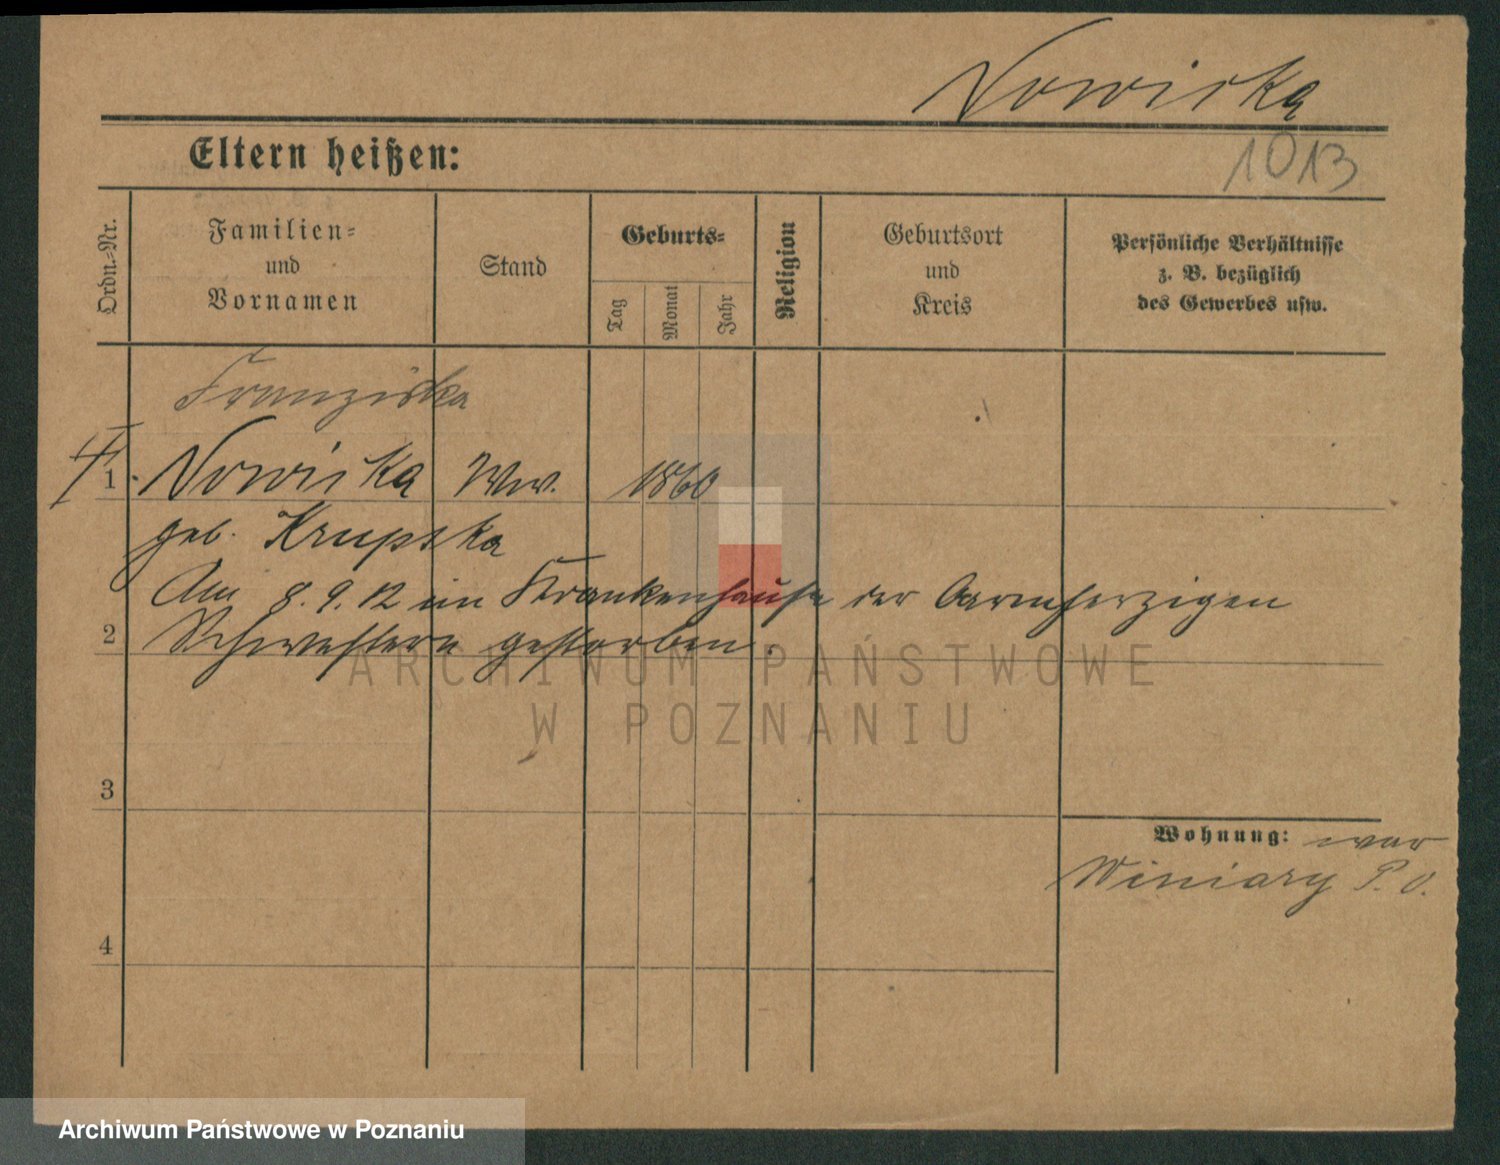 Nowicka
1013
Eltern heißen:
Ordn.-Nr.
Familien- und Vornamen
Stand
Geburts-
Tag
Monat
Jahr
Religion
Geburtsort und Kreis
Persönliche Verhältnisse
z. B. bezüglich
des Gewerbes usw.
Franziska
1 Nowicka Ww. 1860
geb. Krupska
Am 8. 9. 12 im Krankenhause der barmherzigen
2 Schwestern gestorben.
ARCHIWUM PAŃSTWOWE
W POZNANIU
3
Wohnung: war
Winiary P. O.
4
Archiwum Państwowe w Poznaniu